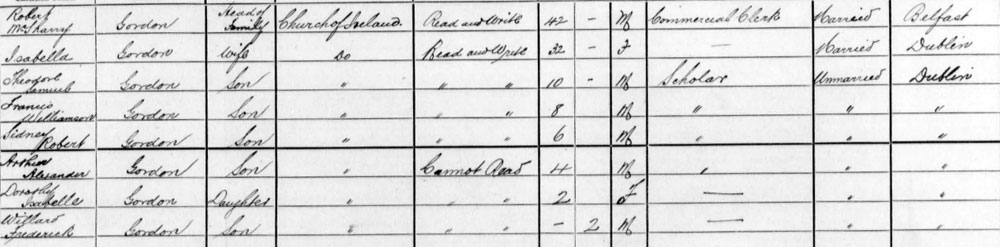 Robert McSharry Gordon Head of Family Church of Ireland Read and Write 42 – M Commercial Clerk Married Belfast
Isabella Gordon Wife Do Read and Write 32 – F — Married Dublin
Theodore Samuel Gordon Son " " " 10 – M Scholar Unmarried Dublin
Francis Williamson Gordon Son " " " 8 M " " "
Sidney Robert Gordon Son " " " 6 M " " "
Arthur Alexander Gordon Son " Cannot Read 4 M " " "
Dorothy Isabelle Gordon Daughter " " " 2 F — " "
Willard Frederick Gordon Son " " " – 2 M — " "